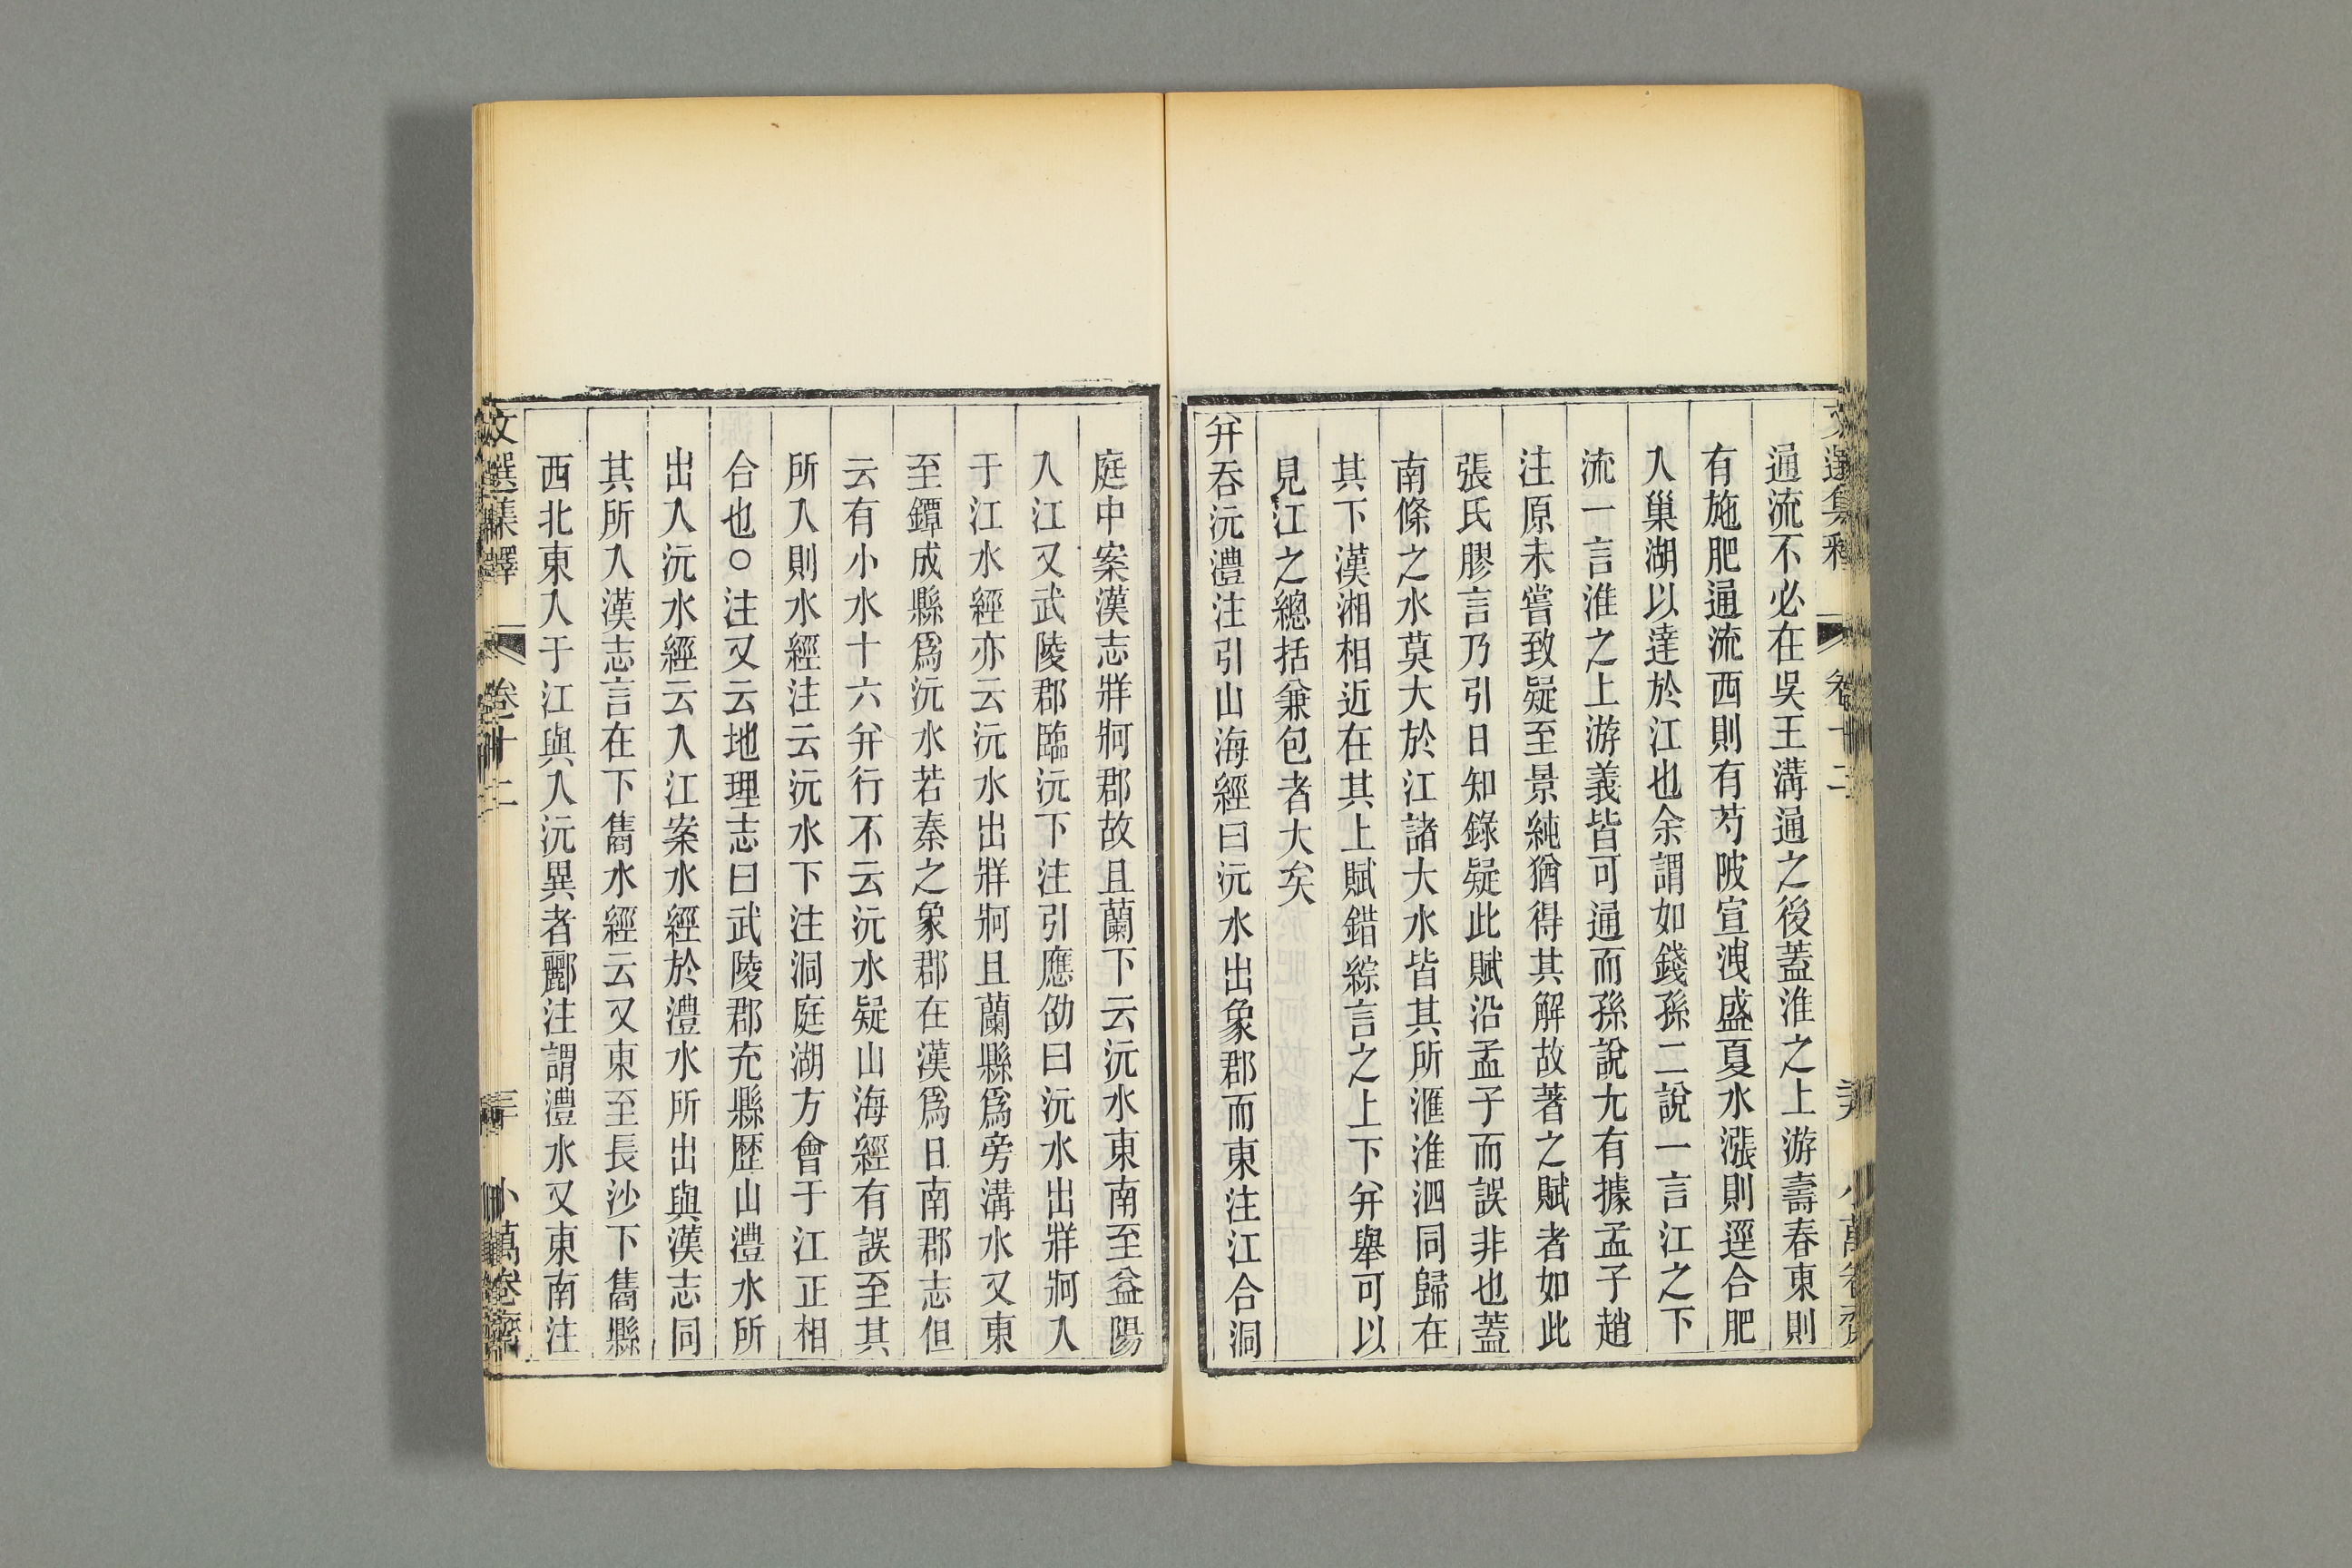 通流不必在吳王溝通之後蓋淮之上游壽春東則
有施肥通流西則有芍陂宣洩盛夏水漲則逕合肥
入巢湖以達於江也余謂如錢孫二說一言江之下
流一言淮之上游義皆可通而孫說尤有據孟子趙
注原未嘗致疑至景純猶得其解故著之賦者如此
張氏膠言乃引日知錄疑此賦沿孟子而誤非也蓋
南條之水莫大於江諸大水皆其所滙淮泗同歸在
其下漢湘相近在其上賦錯綜言之上下弁舉可以
見江之總括兼包者大矣
弁吞沅澧注引山海經曰沅水出象郡而東注江合洞
庭中案漢志牂牁郡故且蘭下云沅水東南至益陽
入江又武陵郡臨沅下注引應劭曰沅水出牂牁入
于江水經亦云沅水出牂牁且蘭縣爲旁溝水又東
至鐔成縣爲沅水若秦之象郡在漢爲日南郡志但
云有小水十六弁行不云沅水疑山海經有誤至其
所入則水經注云沅水下注洞庭湖方會于江正相
合也○注又云地理志曰武陵郡充縣歷山澧水所
出入沅水經云入江案水經於澧水所出與漢志同
其所入漢志言在下雋水經云又東至長沙下雋縣
西北東入于江與入沅異者酈注謂澧水又東南注
文選集釋 卷十二 三 小萬卷齋